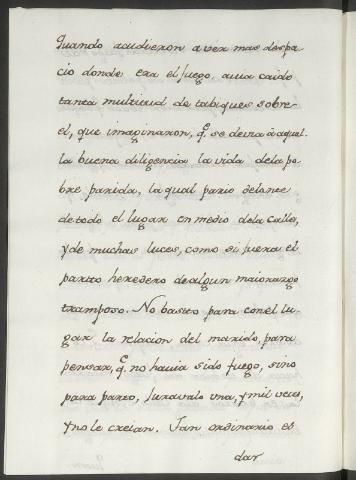 Quando acudieron a ver mas despa-
cio donde era el fuego, auia caido
tanta multitud de tabiques sobre
el, que imaginaron, q̃ se deuia à aquel-
la buena diligencia la vida dela po-
bre parida, la qual pario delante
de todo el lugar en medio dela calle,
y de muchas luces, como si fuera el
parto heredero de algun maiorazgo
tramposo. No bastò para con el lu-
gar la relacion del marido, para
pensar, q̃ no hauia sido fuego, sino
para parto, Juraualo una, y mil veces,
y no le creian. Tan ordinario es
dar